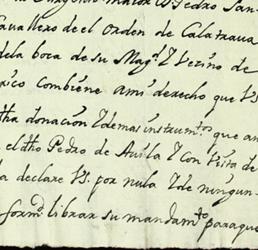 Sargento maior D. Pedro San-
cavallero de el orden de Calatrava
dela boca de su Magd. y Vezino de
xico combiene ami derecho que Vs
tha donacion y demas instrumtos que an
el dho Pedro de Avila y con Vista de
la declare Vs. por nula y de ningun-
formd librar su mandamto paraque